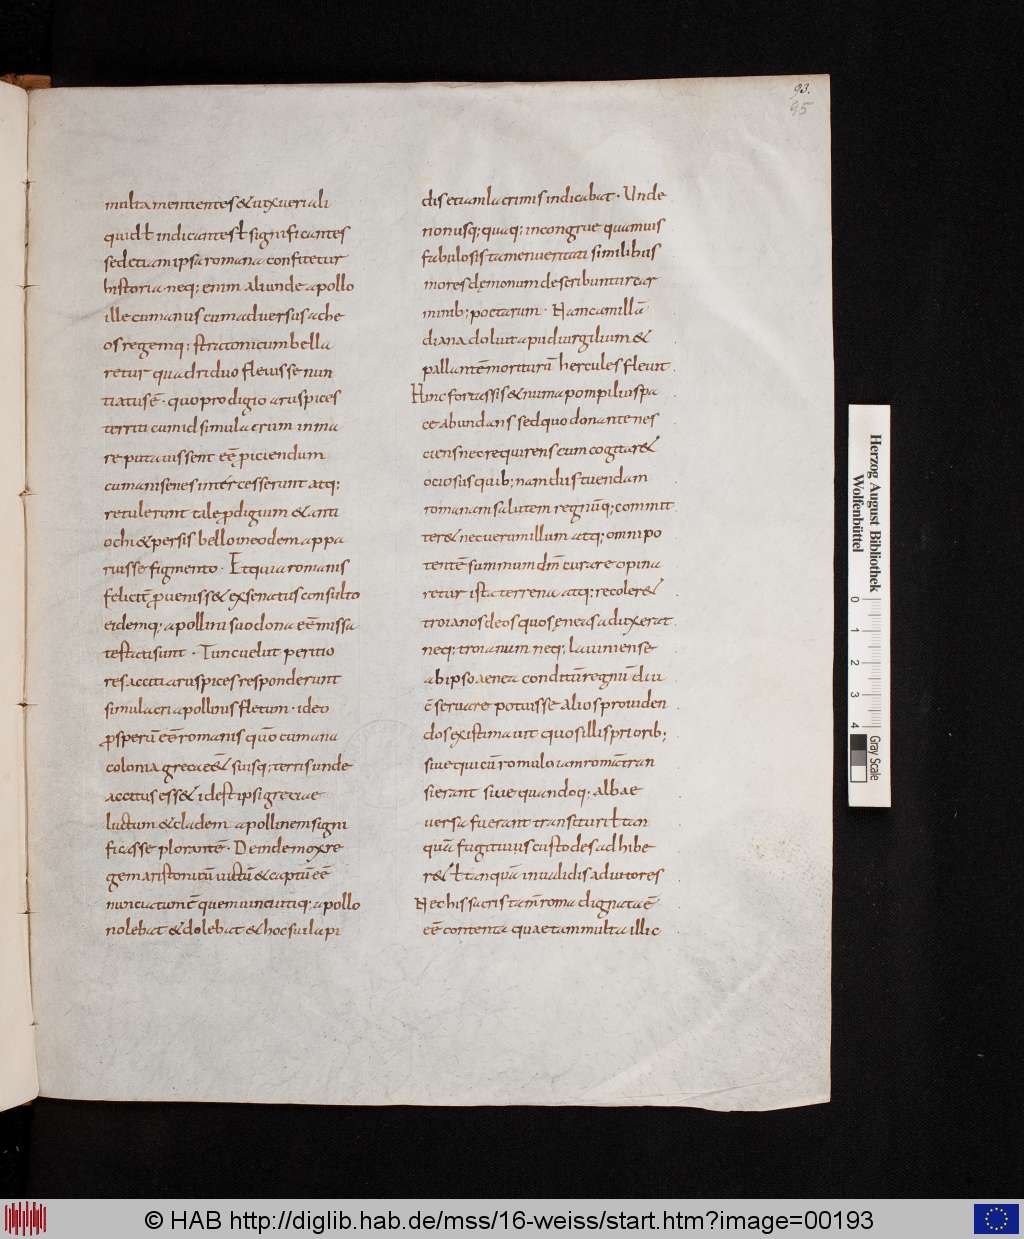 93.
95
multa mentientes & ut xueri ali
quid ł indicantes ł significantes
sed etiam ipsa romana confitetur
historia neq; enim aliunde apollo
ille cumanus cum adversus ache
os regemq; stratonicum bella
retur quadriduo flevisse nun
tiatus ē · quo prodigio aruspices
territi cum id simulacrum in ma
re putavissent eē piciendum
cumani senes intercesserunt atq;
retulerunt tale ꝓdigium & anti
ochi & persis bello in eodem appa
ruisse figmento · Et quia romanis
feliciē ꝓveniss& ex senatus consulto
eidemq; apollini suo dona eē missa
testati sunt · Tunc velut peritio
res acciti aruspices responderunt
simulacri apollinis fletum · ideo
ꝓsperū eē romanis quō cumana
colonia greca eē& suisq; terris unde
accitus ess& id est ipsi greciae
luctum & cladem apollinem signi
ficasse plorantē · Deinde mox re
gem aristonicū victū & captū eē
nunciatum ē quem vinci utiq; apollo
nolebat & dolebat & hoc sui lapi
dis etiam lacrimis indicabat · Unde
non usq; quaq; incongrue quamvis
fabulosis tamen veritati similibus
mores dęmonum describuntur car
minib; poetarum · Nam camillā
diana doluit apud virgilium &
pallantē moriturū hercules flevit
Hinc fortassis & numa pompilius pa
ce abundans sed quo donante nes
ciens nec requirens cum cogitar&
otiosus quib;nam diis tuendam
romanam salutem regnūq; commit
ter& nec verum illum atq; omnipo
tentē summum dm̄ curare opina
retur ista terrena atq; recoler&
troianos deos quos ęneas aduxerat
neq; troianum neq; laviniense
ab ipso aenea conditū regnū diu
c̄servare potuisse alios providen
dos existimavit quos illis priorib;
sive qui cū romulo iam romā tran
sierant sive quandoq; albae
versa fuerant transituri ł tan
quā fugitivis custodes adhibe
r& ł tanquā invalidis adiutores
Nec his sacris tam̄ roma dignata ē
eē contenta quae tam multa illic
Herzog August Bibliothek
Wolfenbüttel
0 1 2 3 4
Gray Scale
© HAB http://diglib.hab.de/mss/16-weiss/start.htm?image=00193